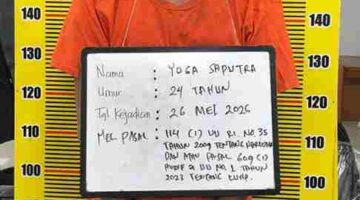 Nama : YOGA SAPUTRA
Umur : 24 TAHUN
Tgl Kejadian : 26 MEI 2025
MEL PASAL : 114 (1) UU RI. NO. 35
TAHUN 2009 TENTANG NARKOTIKA
DAN ATAU PASAL 609 (1)
HURUF A UU NO. 1 TAHUN
2023 TENTANG KUHP.
140 140
130 130
120 120
110 110
100 100